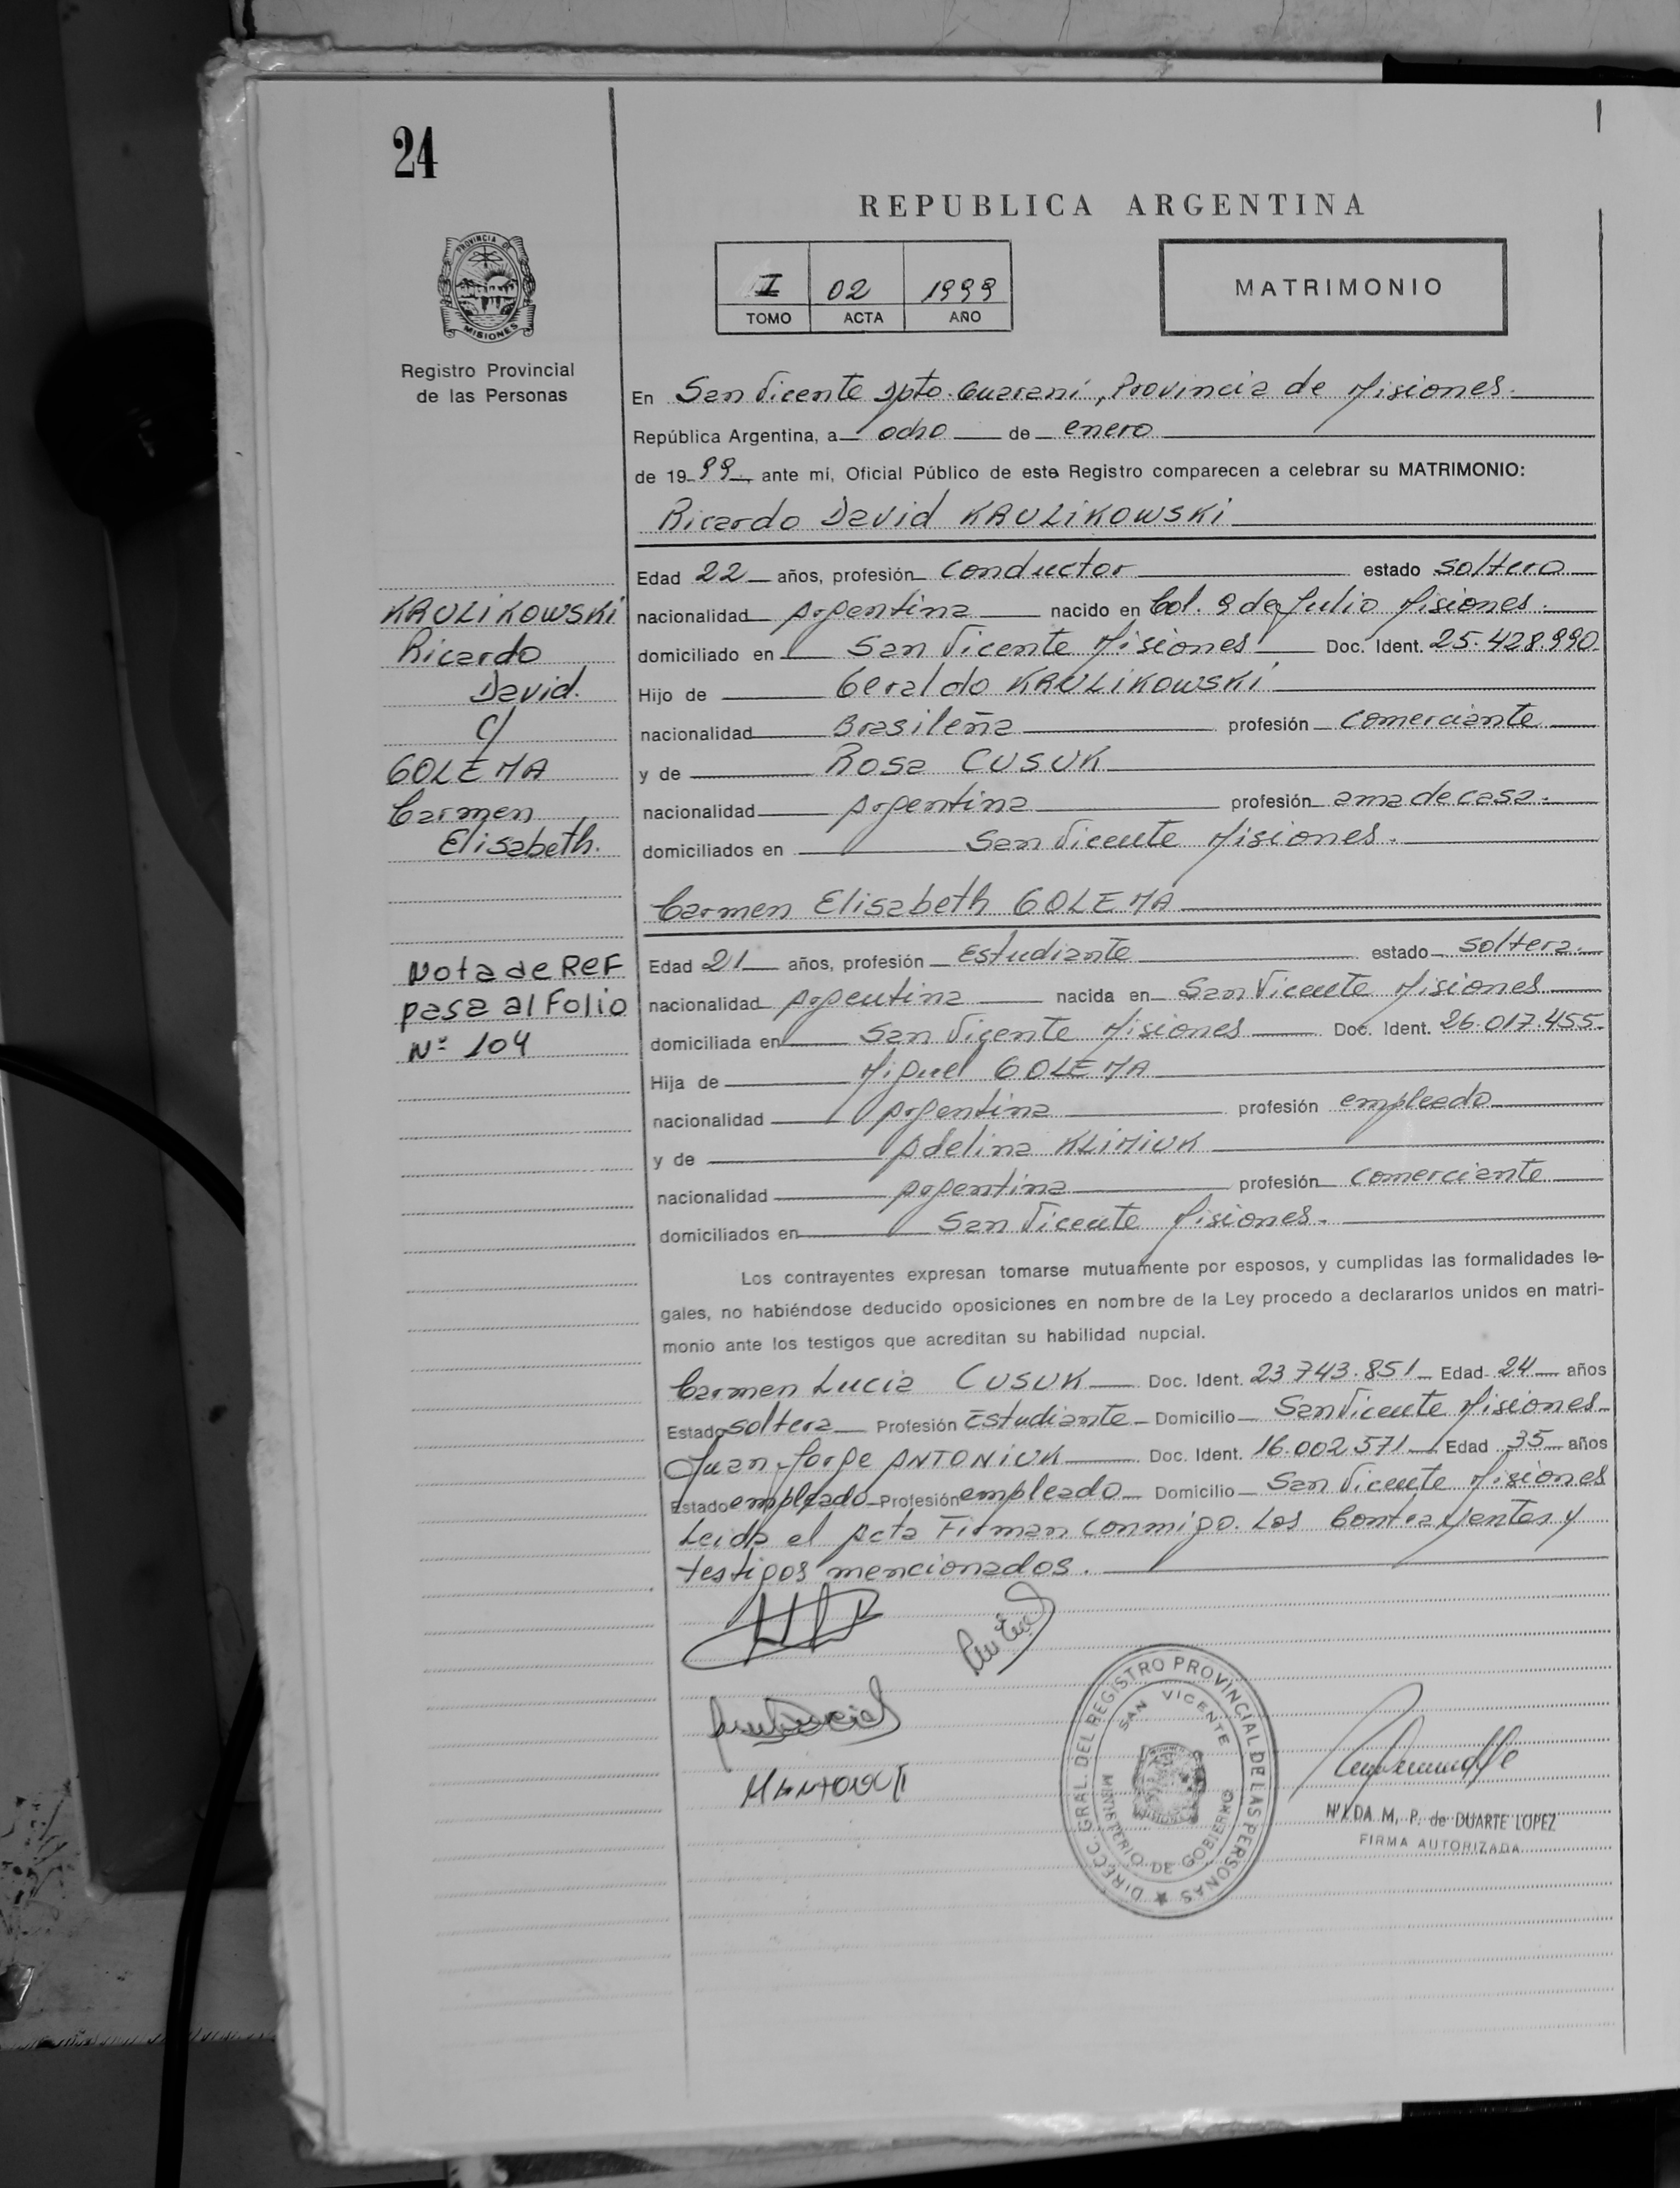 24
REPUBLICA ARGENTINA
PROVINCIA DE
MISIONES
I 02 1999
TOMO ACTA AÑO
MATRIMONIO
Registro Provincial
de las Personas
En San Vicente Dpto. Guaraní, Provincia de Misiones.
República Argentina, a ocho de enero
de 1999, ante mí, Oficial Público de este Registro comparecen a celebrar su MATRIMONIO:
Ricardo David KAULIKOWSKI
Edad 22 años, profesión conductor estado soltero
nacionalidad Argentina nacido en Col. 9 de Julio Misiones.
domiciliado en San Vicente Misiones Doc. Ident. 25.428.990
Hijo de Geraldo KAULIKOWSKI
nacionalidad Brasileña profesión comerciante
y de Rosa CUSUK
nacionalidad Argentina profesión ama de casa.
domiciliados en San Vicente Misiones.
Carmen Elisabeth GOLEMA
Edad 21 años, profesión Estudiante estado soltera.
nacionalidad Argentina nacida en San Vicente Misiones
domiciliada en San Vicente Misiones Doc. Ident. 26.017.455
Hija de Miguel GOLEMA
nacionalidad Argentina profesión empleado
y de Adelina KLIMIUK
nacionalidad Argentina profesión comerciante
domiciliados en San Vicente Misiones.
KAULIKOWSKI
Ricardo
David.
c/
GOLEMA
Carmen
Elisabeth.
Nota de REF
pasa al Folio
Nº 104
Los contrayentes expresan tomarse mutuamente por esposos, y cumplidas las formalidades le-
gales, no habiéndose deducido oposiciones en nombre de la Ley procedo a declararlos unidos en matri-
monio ante los testigos que acreditan su habilidad nupcial.
Carmen Lucia CUSUK Doc. Ident. 23743.851 Edad 24 años
Estado soltera Profesión Estudiante Domicilio San Vicente Misiones
Juan Jorge ANTONIUK Doc. Ident. 16.002.571 Edad 35 años
Estado empleado Profesión empleado Domicilio San Vicente Misiones
Leida el Acta Firman conmigo. Los Contrayentes y
testigos mencionados.
DIRECC. GRAL. DEL REGISTRO PROVINCIAL DE LAS PERSONAS
SAN VICENTE
MINISTERIO DE GOBIERNO
M. P. de DUARTE LOPEZ
FIRMA AUTORIZADA